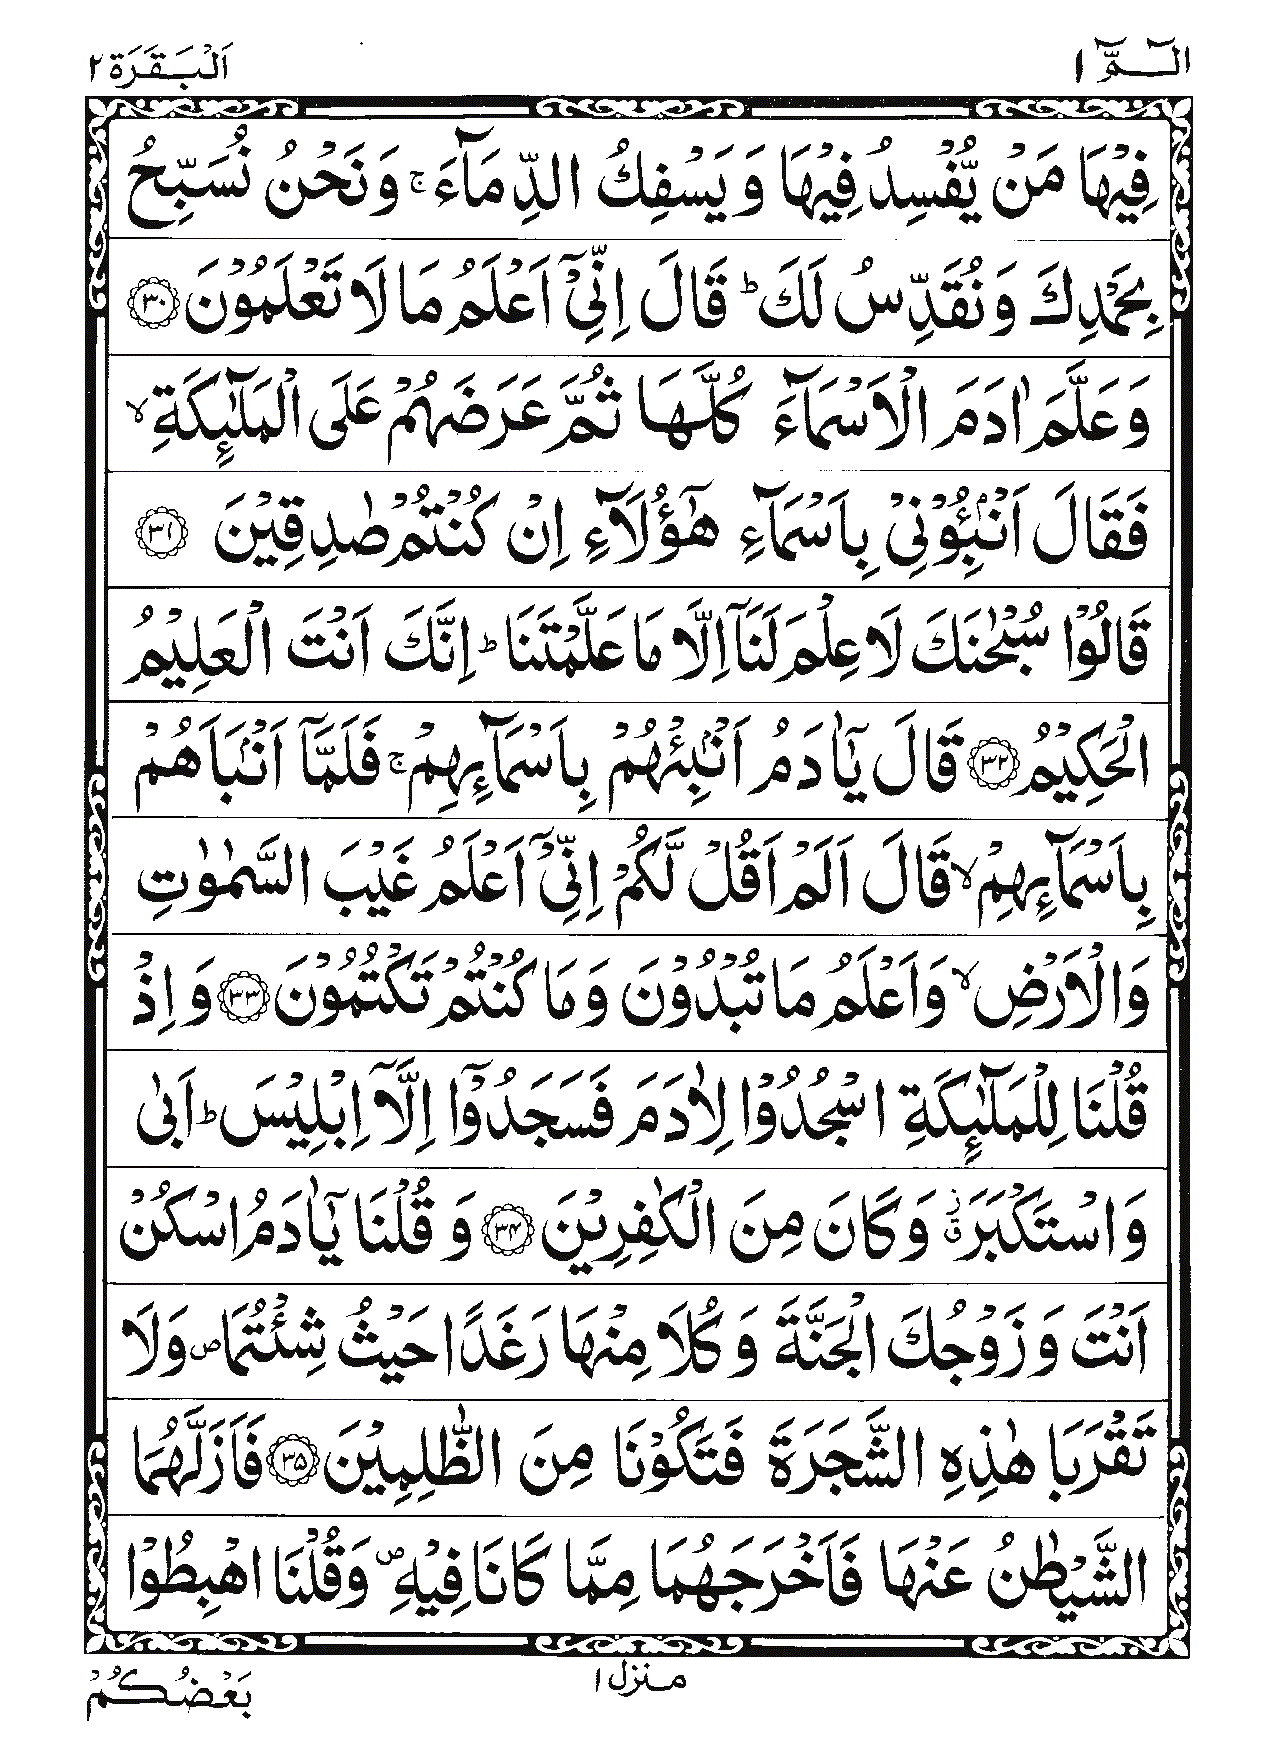 الٓـمّٓ ۱
اَلْبَقَرَة ۲
فِيْهَا مَنْ يُّفْسِدُ فِيْهَا وَ يَسْفِكُ الدِّمَآءَ ۚ وَنَحْنُ نُسَبِّحُ
بِحَمْدِكَ وَنُقَدِّسُ لَكَ ؕ قَالَ اِنِّيْۤ اَعْلَمُ مَا لَا تَعْلَمُوْنَ ﴿۳۰﴾
وَعَلَّمَ اٰدَمَ الْاَسْمَآءَ كُلَّهَا ثُمَّ عَرَضَهُمْ عَلَى الْمَلٰٓئِكَةِ ۙ
فَقَالَ اَنْۢبِـُٔوْنِيْ بِاَسْمَآءِ هٰٓؤُلَآءِ اِنْ كُنْتُمْ صٰدِقِيْنَ ﴿۳۱﴾
قَالُوْا سُبْحٰنَكَ لَا عِلْمَ لَنَاۤ اِلَّا مَا عَلَّمْتَنَا ؕ اِنَّكَ اَنْتَ الْعَلِيْمُ
الْحَكِيْمُ ﴿۳۲﴾ قَالَ يٰۤاٰدَمُ اَنْۢبِئْهُمْ بِاَسْمَآئِهِمْ ۚ فَلَمَّاۤ اَنْۢبَاَهُمْ
بِاَسْمَآئِهِمْ ۙ قَالَ اَلَمْ اَقُلْ لَّكُمْ اِنِّيْۤ اَعْلَمُ غَيْبَ السَّمٰوٰتِ
وَالْاَرْضِ ۙ وَاَعْلَمُ مَا تُبْدُوْنَ وَمَا كُنْتُمْ تَكْتُمُوْنَ ﴿۳۳﴾ وَ اِذْ
قُلْنَا لِلْمَلٰٓئِكَةِ اسْجُدُوْا لِاٰدَمَ فَسَجَدُوْۤا اِلَّاۤ اِبْلِيْسَ ؕ اَبٰى
وَاسْتَكْبَرَ ۗ٘ وَكَانَ مِنَ الْكٰفِرِيْنَ ﴿۳۴﴾ وَ قُلْنَا يٰۤاٰدَمُ اسْكُنْ
اَنْتَ وَ زَوْجُكَ الْجَنَّةَ وَ كُلَا مِنْهَا رَغَدًا حَيْثُ شِئْتُمَا ۪ وَلَا
تَقْرَبَا هٰذِهِ الشَّجَرَةَ فَتَكُوْنَا مِنَ الظّٰلِمِيْنَ ﴿۳۵﴾ فَاَزَلَّهُمَا
الشَّيْطٰنُ عَنْهَا فَاَخْرَجَهُمَا مِمَّا كَانَا فِيْهِ ۪ وَقُلْنَا اهْبِطُوْا
منزل ۱
بَعْضُكُمْ